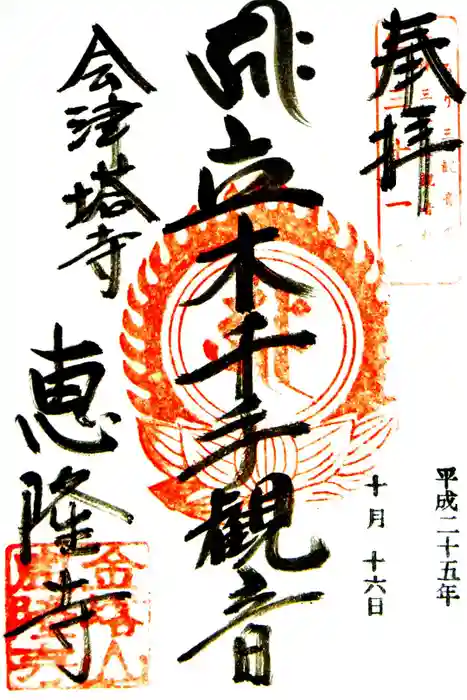 奉拝
平成二十五年
十月十六日
立木千手観音
会津塔寺
恵隆寺